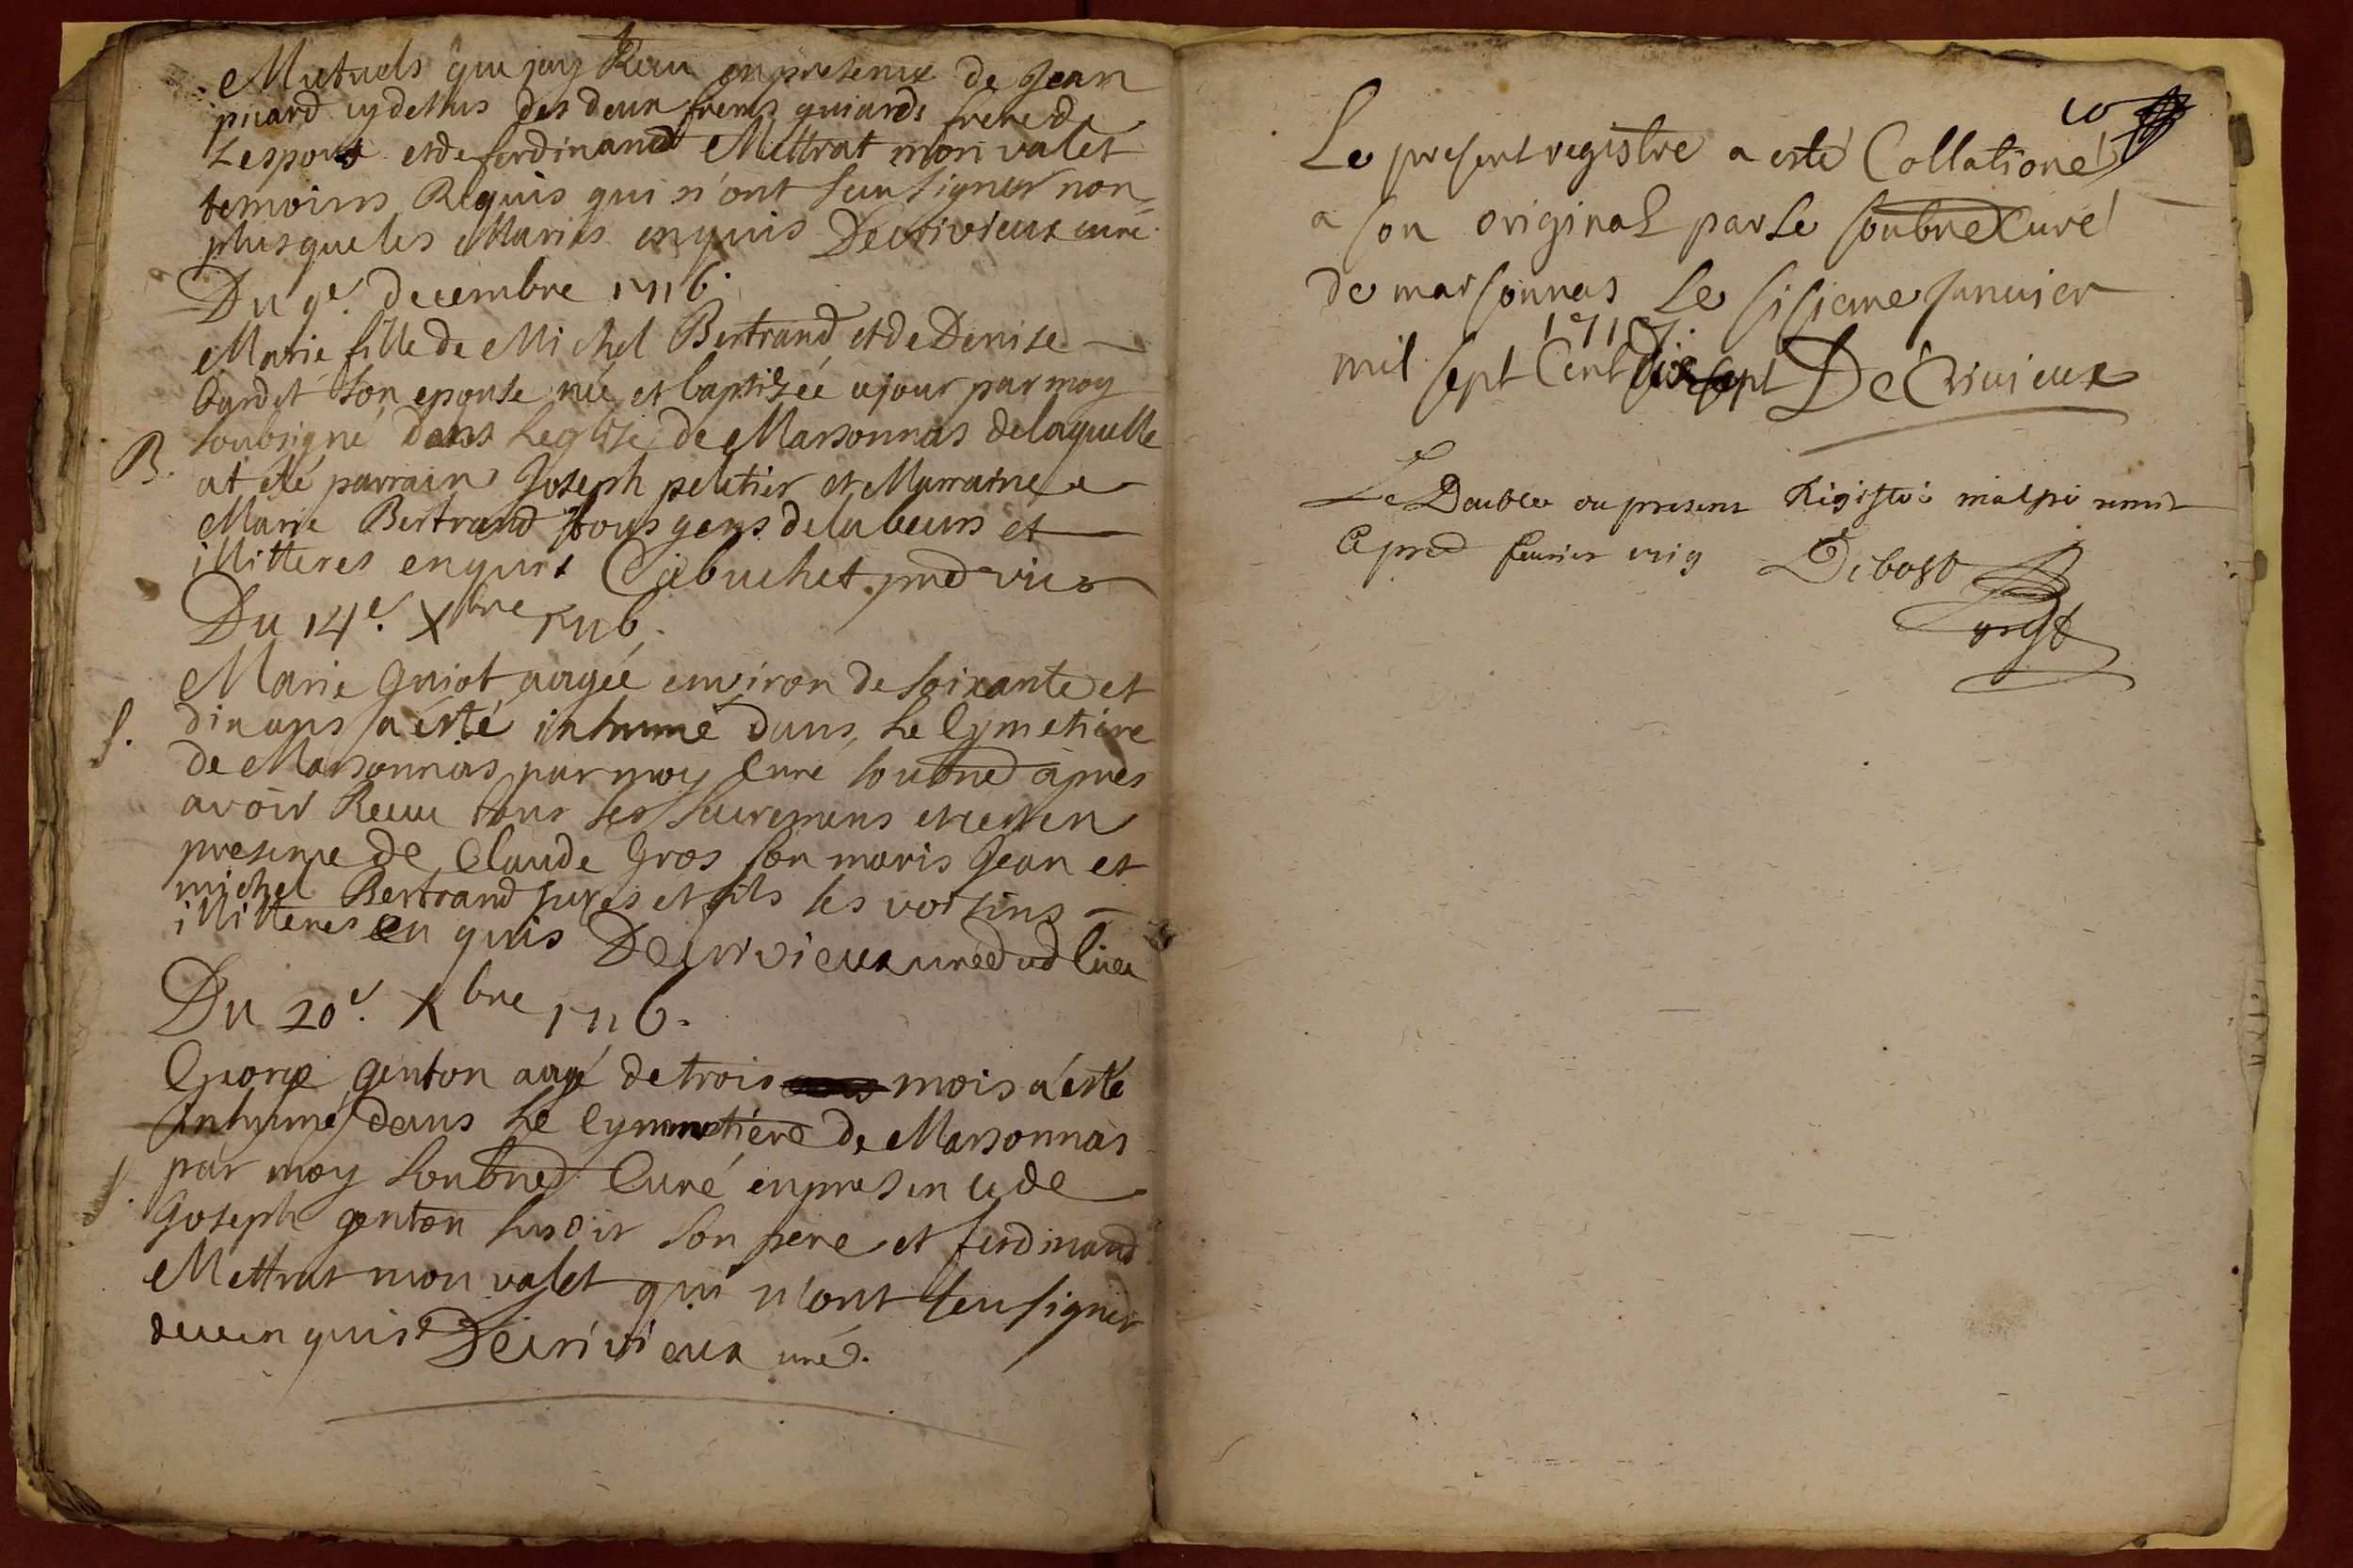 Mutuels que jay Receu en presence de Jean
picard cydessus des deux freres guiards frere de
Lespous et de ferdinand Mettrat mon valet
temoins Requis qui n'ont sceu signer non=
plus que les Maries enquis Decrivieux curé
Du 9e. decembre 1716.
Marie fille de Michel Bertrand et de Denise
bardet son epouse née et baptisée cejour par moy
soubsigné dans Leglise de Marsonnas de laquelle
B. at eté parrain Joseph peletier et Marraine
Marie Bertrand tous gens de labeurs et
illitteres enquis C Jebuchet pred vic
Du 14e. Xbre 1716.
Marie guiot aagée environ de soixante et
S. dix ans a esté inhumé dans Le Cymetiere
de Marsonnas par moy Curé soubned apres
avoir Receu tous ses sacremens et ce en
presence de Claude gros son maris Jean et
michel Bertrand peres et fils ses voisins
illitteres enquis Decrivieux curé dud lieu
Du 20e. Xbre 1716.
George genton aagé de trois mois a esté
Inhumé dans Le Cymmetiere de Marsonnas
S. par moy soubned Curé en presence de
Joseph genton susdit son pere et ferdinand
Mettrat mon valet qui n'ont sceu signer
de ce enquis Decrivieux curé.
10
Le present registre a esté Collationé
a son original par Le soubne Curé
de marsonnas Le sisieme Janvier
1717.
mil sept Cent dix sept DeCrivieux
Le Double du present Registre m'a esté remis
Ce pred fevrier 1719 Debost
grest